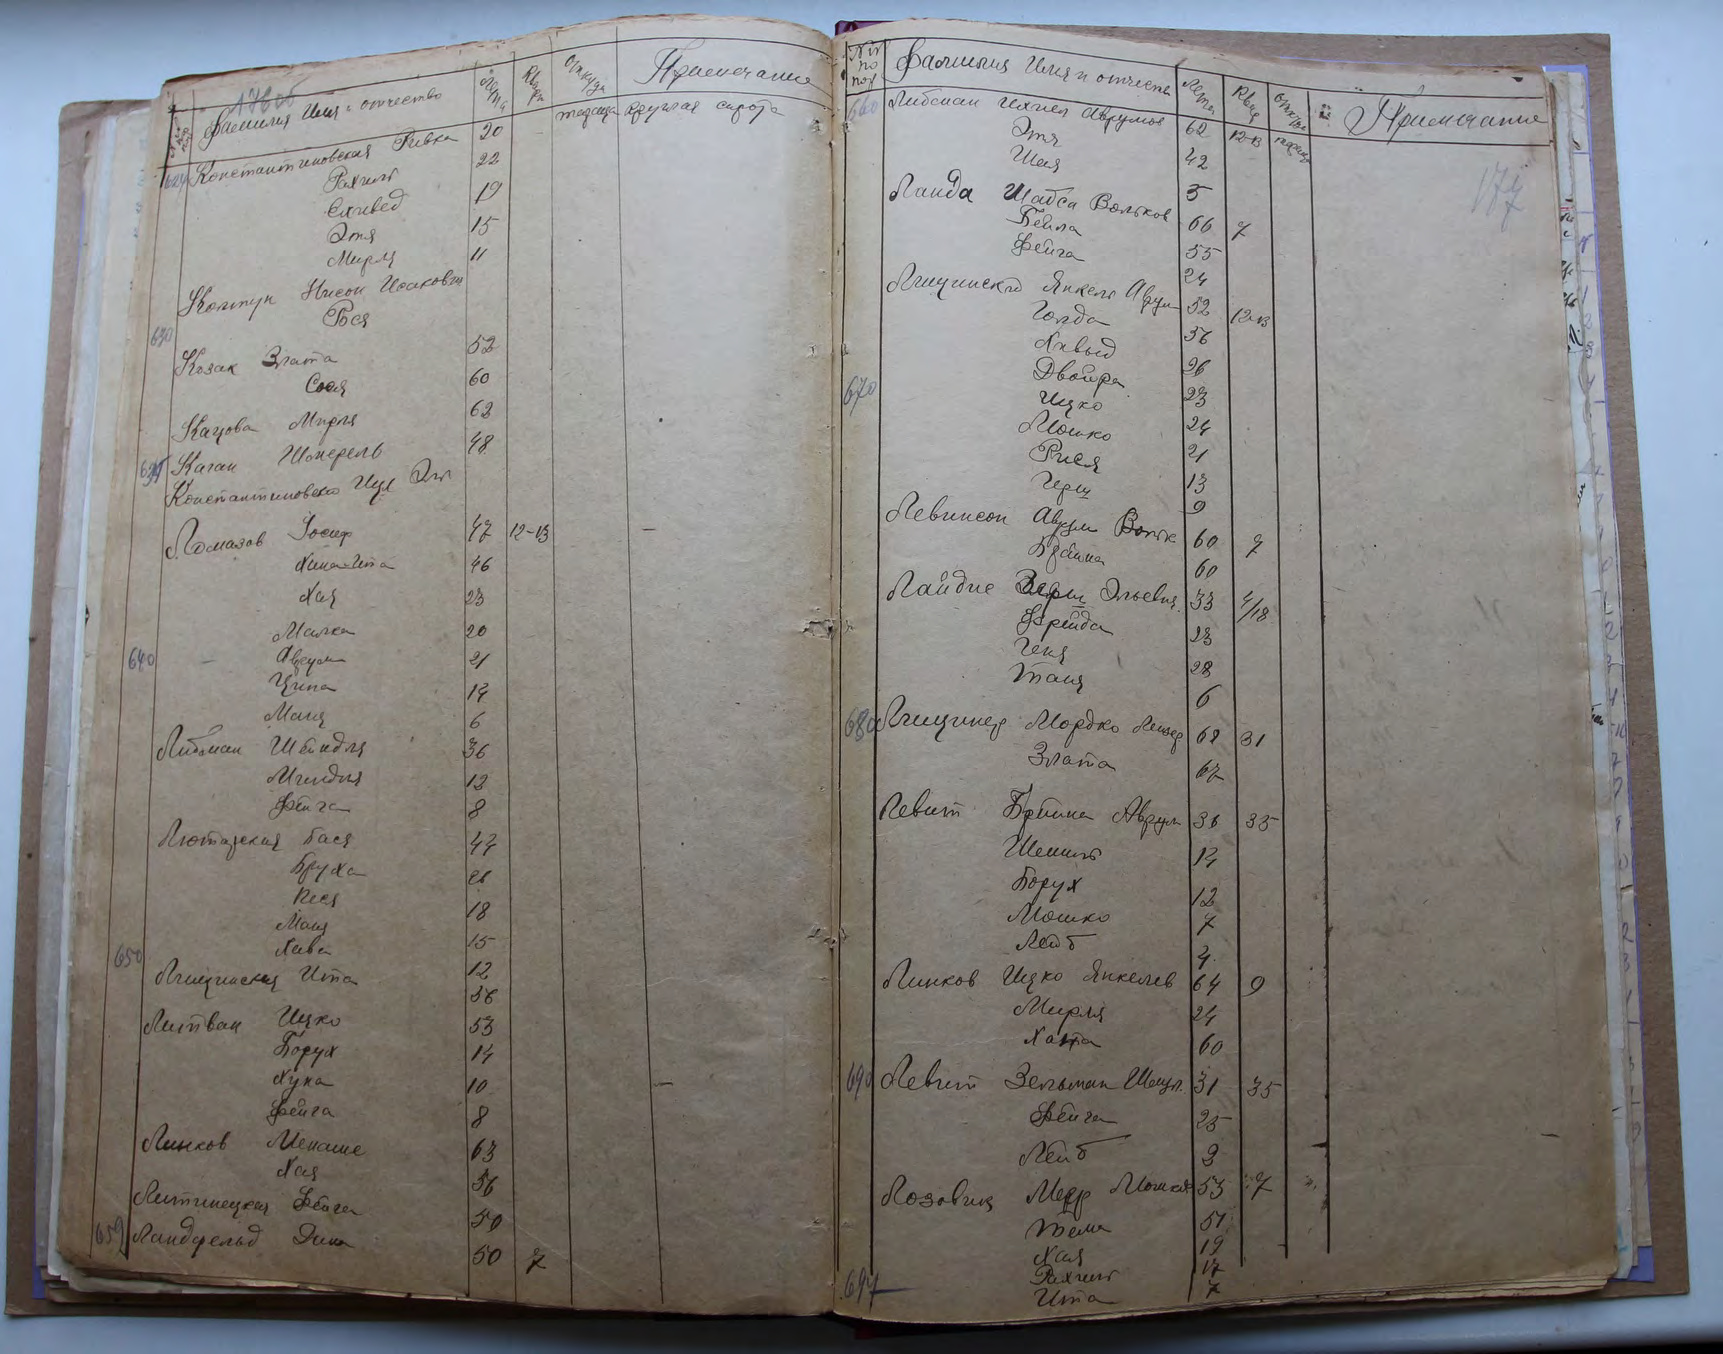 176 об
Фамилия Имя и отчество Лета Кварт Откуда Примечание
624 Константиновская Ривка 20 Тараща круглая сирота
Рахиль 22
Ехивед 19
Этя 15
Мирля 11
Колтун Нисон Исакович
630 Рося
Козак Злата 52
Сося 60
Кацова Мирля 62
Каган Шперель 48
635 Константиновски Ицк
Ломазов Иосиф 47 12-13 —
Хина-Ита 46
Хая 23
Малка 20
640 Аврум 21
Ципа 14
Маня 6
Либман Шейндля 36
Миндля 12
Фейга 8
Лютарская Бася 47
Бруха
Рися 18
Маня 15
650 Хава 12
Лищинская Ита 56
Литвак Ицко 53
Борух 14
Хука 10 —
Фейга 8
Линков Менаше 63
Хая 56
Литинецкая Фейга 50
659 Ландфельд Дина 50 7
№№ по пор Фамилия Имя и отчеств Лета Кварт Откуда Примечание
177
660 Либман Ихиел Аврумов 62 12-13 Тараща
Этя 42
Шая 5
Ланда Шабса Вольков 66 7
Бейла 55
Фейга 24
Лищински Янкель Аврум 52 12-13
Голда 36
Давыд 26
670 Двойра 23
Ицко 24
Мошко 21
Рися 13
Герш 9
Левинсон Аврум Вольк 60 7
Брайна 60
Лайдце Герш Эльевич 33 4/18
Фрейда 23
Геня 28
Таня 6
680 Лищинер Мордко Лейзер 68 31
Злата 67
Левит Брйина Аврум 36 35
Шепшл 14
Борух 12
Мошко 7
Лейб 4
Линков Ицко Янкелев 64 9
Мирля 24
Хата 60
690 Левит Зельман Шепшл 31 35
Фейга 25
Лейб 3
Лозовик Меер Мошков 53 7
Тема 51
Хая 19
Рахиль 17
697 Ита 7